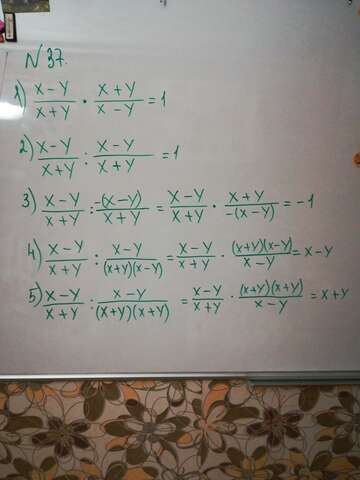 N 37.
1) (x-y)/(x+y) · (x+y)/(x-y) = 1
2) (x-y)/(x+y) : (x-y)/(x+y) = 1
3) (x-y)/(x+y) : (-(x-y))/(x+y) = (x-y)/(x+y) · (x+y)/(-(x-y)) = -1
4) (x-y)/(x+y) : (x-y)/((x+y)(x-y)) = (x-y)/(x+y) · ((x+y)(x-y))/(x-y) = x-y
5) (x-y)/(x+y) : (x-y)/((x+y)(x+y)) = (x-y)/(x+y) · ((x+y)(x+y))/(x-y) = x+y